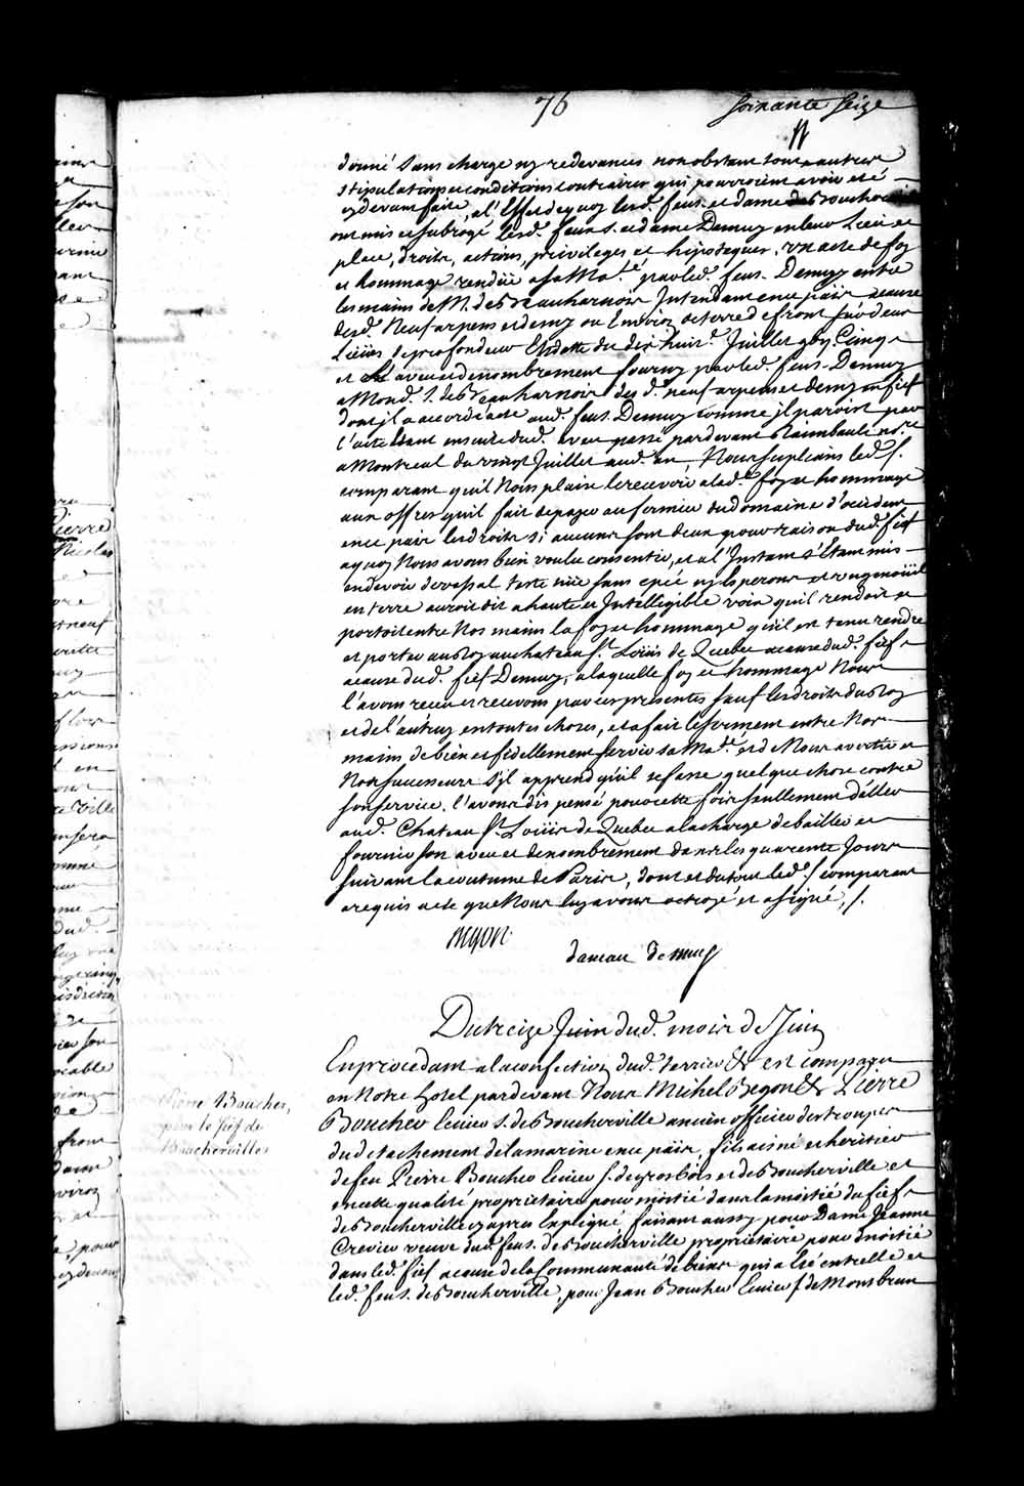 76 soixante seize
donné sans charge ny redevances nonobstant toutes autres
stipulations et conditions contraires qui pourroient avoir eté
cydevant faite, a l'Effet de quoy lesd. feu s. et dame de Boucherville
ont mis et subrogé lesd. feu s. et dame Demuy en leur Lieu et
place, droits, actions, privileges et hipoteques. un acte de foy
et hommage rendüe a sa Ma.té par led. feu s. Demuy entre
les mains de M. de Beauharnois Intendant en ce päis acause
desd. Neuf arpens et demy ou Environ de terre de front sur deux
Lieües de profondeur Endatte du dix huit.e Juillet 1705. Cinq
et L'aveu et denombrement fourny par led. feu s. Demuy
a Mond. S. de Beauharnois des d. neuf arpens et demy en fief
dont il a accordé acte aud. feu s. Demuy comme il paroist par
l'acte Etant ensuite dud. aveu passé pardevant Raimbault no.re
a Montreal du vingt Juillet aud. an, Nous supliant led. s.
comparant qu'il Nous plaise le recevoir a lad. foy et hommage
aux offres qu'il fait de payer au fermier du domaine d'occident
en ce päis les droits si aucuns sont deus pour raison dud. fief
a quoy Nous avons bien voulu consentir, et a l'Instant s'Etant mis
en devoir de vassal teste nüe sans epée ny Esperons et un genoüil
en terre auroit dit a haute et Intelligible voix qu'il rendoit et
portoit entre Nos mains la foy et hommage qu'il est tenu rendre
et porter au Roy au chateau S.t Loüis de Quebec acause dud. fief
acause dud. fief Demuy, a laquelle foy et hommage Nous
l'avons receu et recevons par ces presentes sauf les droits du Roy
et de l'autruy en toutes choses, et a fait le serment entre Nos
mains de bien et fidellement servir sa Ma.té et de Nous avertir et
Nos successeurs s'il apprend qu'il se fasse quelque chose contre
son service. l'avons dispensé pour cette fois seullement d'aller
aud. Chateau S.t Loüis de Quebec a la charge de bailler et
fournir son aveu et denombrement dans les quarente Jours
suivant la coutume de Paris, dont et du tout led. s. comparant
a requis acte que Nous luy avons octroyé et a signé, /.
Begon
daneau de muy
Du treize Juin dud. mois de Juin
En procedant a la confection dud. terrier &c est comparu
en Notre hotel pardevant Nous Michel Begon &c Pierre
Boucher Ecuier s. de Boucherville ancien officier des troupes
du detachement de la marine en ce päis, fils aisné et heritier
de feu Pierre Boucher Ecuier s. de grosbois et de Boucherville et
en cette qualité proprietaire pour moitié dans la moitié du fief
de Boucherville cy apres Expliqué, faisant aussy pour Dame Jeanne
Crevier veuve dud. feu s. de Boucherville proprietaire pour moitié
dans led. fief acause de la Communauté de biens qui a eté entr'elle et
led. feu s. de Boucherville, pour Jean Boucher Ecuier s. de Montbrun
Pierre Boucher,
pour le fief de
Boucherville